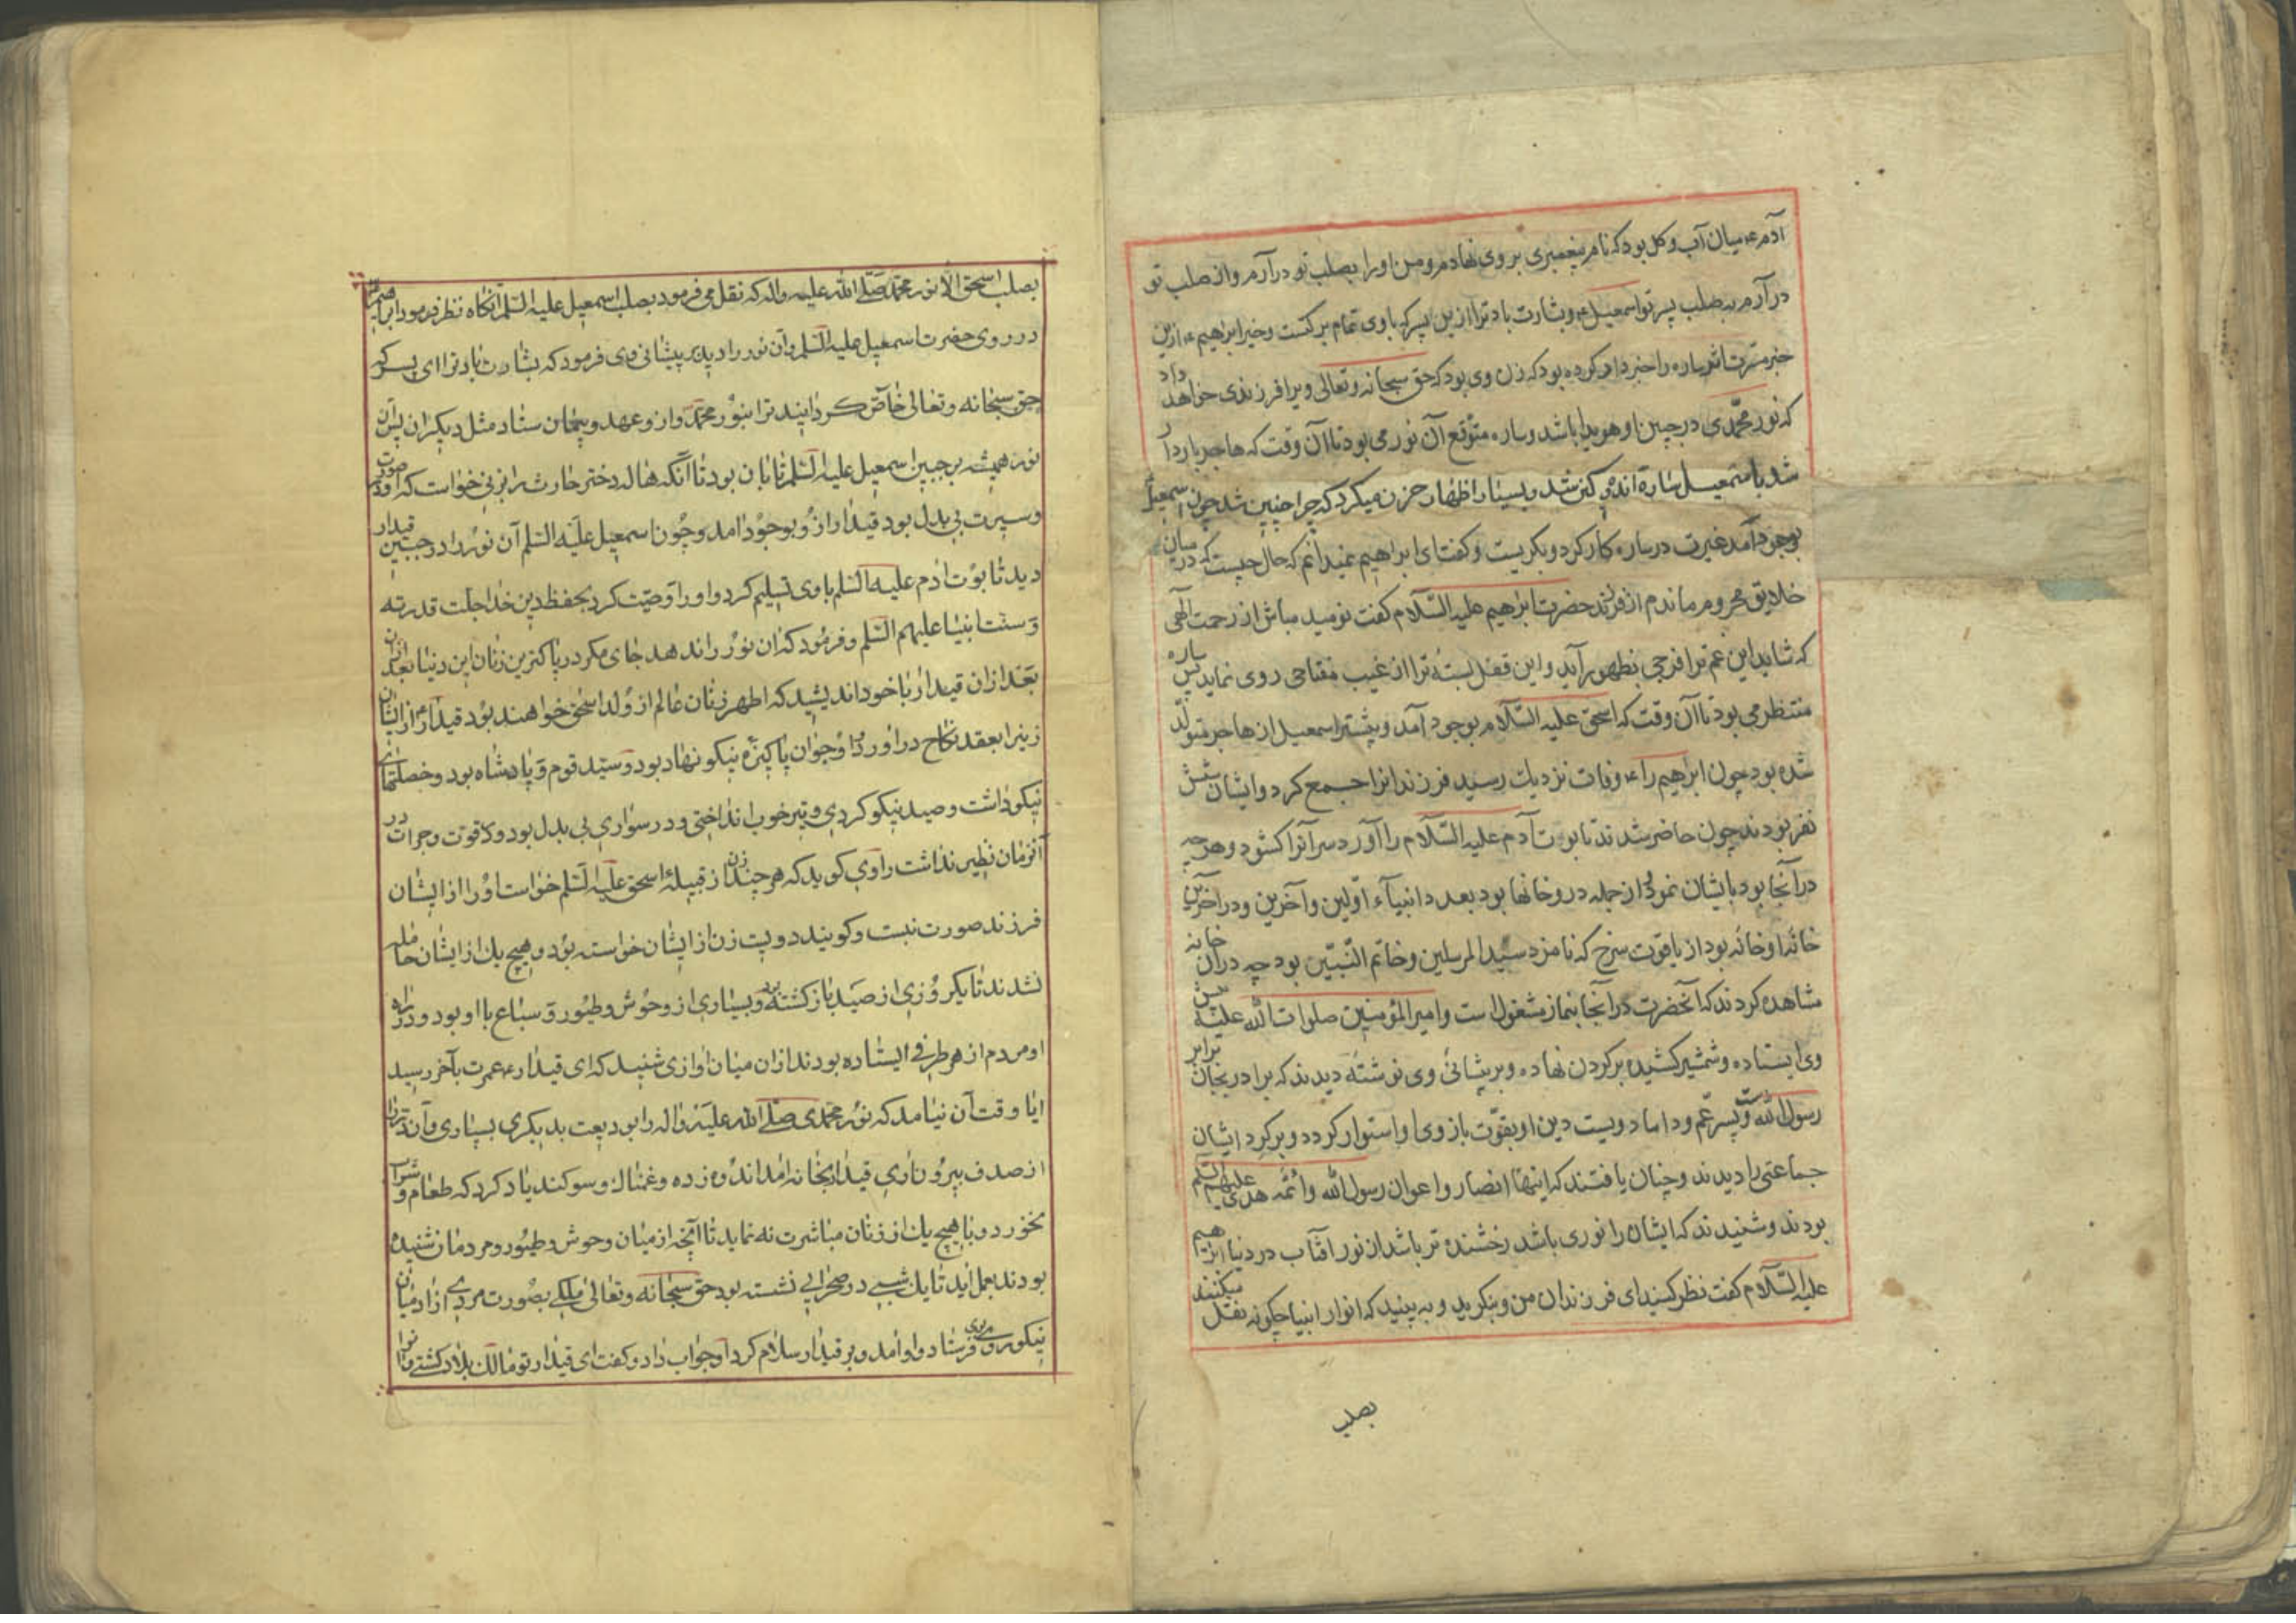 آدم ع میان آب و کل بود که نام پیغمبری بر وی نهادم و من او را بصلب تو در آرم و از صلب تو
در آرم به صلب پسر تو اسمعیل ع و بشارت باد ترا ازین پسر که با وی تمام برکتست و خیر ابراهیم ع ازین
خبر مسرت اثر ساره را خبر داد کرده بود که زن وی بود که حق سبحانه و تعالی ویرا فرزندی خواهد داد
که نور محمدی در جبین او هویدا باشد و ساره متوقع آن نور می بود تا آن وقت که هاجر باردار
شد باسمعیل ساره اندوهکین شد و بسیار اظهار حزن میکرد که چرا چنین شد چون اسمعیل
بوجود آمد غیرت در ساره کار کرد و بکریست و کفت ای ابراهیم نمیدانم که حال چیست که در میان
خلایق محروم ماندم از فرزند حضرت ابراهیم علیه السلام کفت نومید مباش از رحمت الهی
که شاید این غم ترا فرجی بظهور آید و این قفل بسته ترا از غیب مفتاحی روی نماید پس ساره
منتظر می بود تا آن وقت که اسحق علیه السلام بوجود آمد و پیشتر اسمعیل از هاجر متولد
شده بود چون ابراهیم را ع وفات نزدیک رسید فرزندانرا جمع کرد و ایشان شش
نفر بودند چون حاضر شدند تابوت آدم علیه السلام را آورد سر آنرا کشود و هر چه
در آنجا بود بایشان نمود از جمله در و خانها بود بعدد انبیآء اولین و آخرین و در آخرین
خانها و خانه بود از یاقوت سرخ که نامزد سید المرسلین و خاتم النبیین بود چه در آن خانه
مشاهده کردند که آنحضرت در آنجا بنماز مشغول است و امیر المؤمنین صلوات الله علیه
وی ایستاده و شمشیر کشیده بر کردن نهاده و بر پیشانی وی نوشته دیدند که برادر بجان برابر
رسول الله و پسر عم و داماد ویست دین او بقوت بازوی او استوار کردد و بر کرد ایشان
جماعتی را دیدند و چنان یافتند که اینها انصار و اعوان رسول الله و ائمه هدی علیهم السلم
بودند و شنیدند که ایشان را نوری باشد رخشنده تر باشد از نور افتاب در دنیا ابراهیم
علیه السلام کفت نظر کنید ای فرزندان من و بنکرید و به بینید که انوار انبیا چکونه نقل میکنند
بصلب
بصلب اسحق الا نور محمد صلی الله علیه و اله که نقل می فرمود بصلب اسمعیل علیه السلم آنکاه نظر فرمود ابراهیم
در روی حضرت اسمعیل علیه السلم و آن نور را دید بر پیشانی وی فرمود که بشارت باد ترا ای پسر که
حق سبحانه و تعالی خاص کردانید ترا بنور محمد و از و عهد و پیمان ستاد مثل دیکران پس آن
نور همیشه بر جبین اسمعیل علیه السلم تابان بود تا آنکه هاله دختر حارث را بزنی خواست که او در صورت
و سیرت بی بدل بود قیدار از و بوجود امد و چون اسمعیل علیه السلم آن نور را در جبین قیدار
دید تابوت ادم علیه السلم باوی تسلیم کرد و او را وصیت کرد بحفظ دین خدا جلت قدرته
و سنت انبیا علیهم السلم و فرمود که ان نور را ندهد جای مکر در پاکترین زنان این دنیا بعد از ان
بعد از ان قیدار با خود اندیشید که اطهر زنان عالم از ولد اسحق خواهند بود قیدار ع از ایشان
زنیرا بعقد نکاح در اورد و او جوان پاکیزه نیکو نهاد بود و سید قوم و پادشاه بود و خصلتهای
نیکو داشت و صید نیکو کردی و تیر خوب انداختی و در سواری بی بدل بود و لا قوت و جرات در
آنزمان نظیر نداشت راوی کوید که هر چند زن از قبیله اسحق علیه السلم خواست او را از ایشان
فرزند صورت نبست و کویند دویست زن از ایشان خواسته بود و هیچ یک از ایشان حامله
نشدند تا یکروزی از صید باز کشته بود و بسیاری از وحوش و طیور و سباع با او بود و در راه
او مردم از هر طرفی ایستاده بودند از ان میان اوازی شنید که ای قیدار ع عمرت بآخر رسید
ایا وقت آن نیامد که نور محمدی صلی الله علیه و اله را بودیعت بدیکری بسپاری و آن در را
از صدف بیرون اری قیدار بخانه امد اندوه زده و غمناک و سوکند یاد کرد که طعام و شراب
نخورد و با هیچ یک از زنان مباشرت نه نماید تا آنچه از میان وحوش و طیور و مردمان شنیده
بودند بعمل اید تا یک شبی در صحرایی نشسته بود حق سبحانه و تعالی ملکی بصورت مردی از ادمیان
نیکو روی فرستاد و او امد و بر قیدار سلام کرد و جواب داد و کفت ای قیدار تو مالک بلاد کشتی و ترا